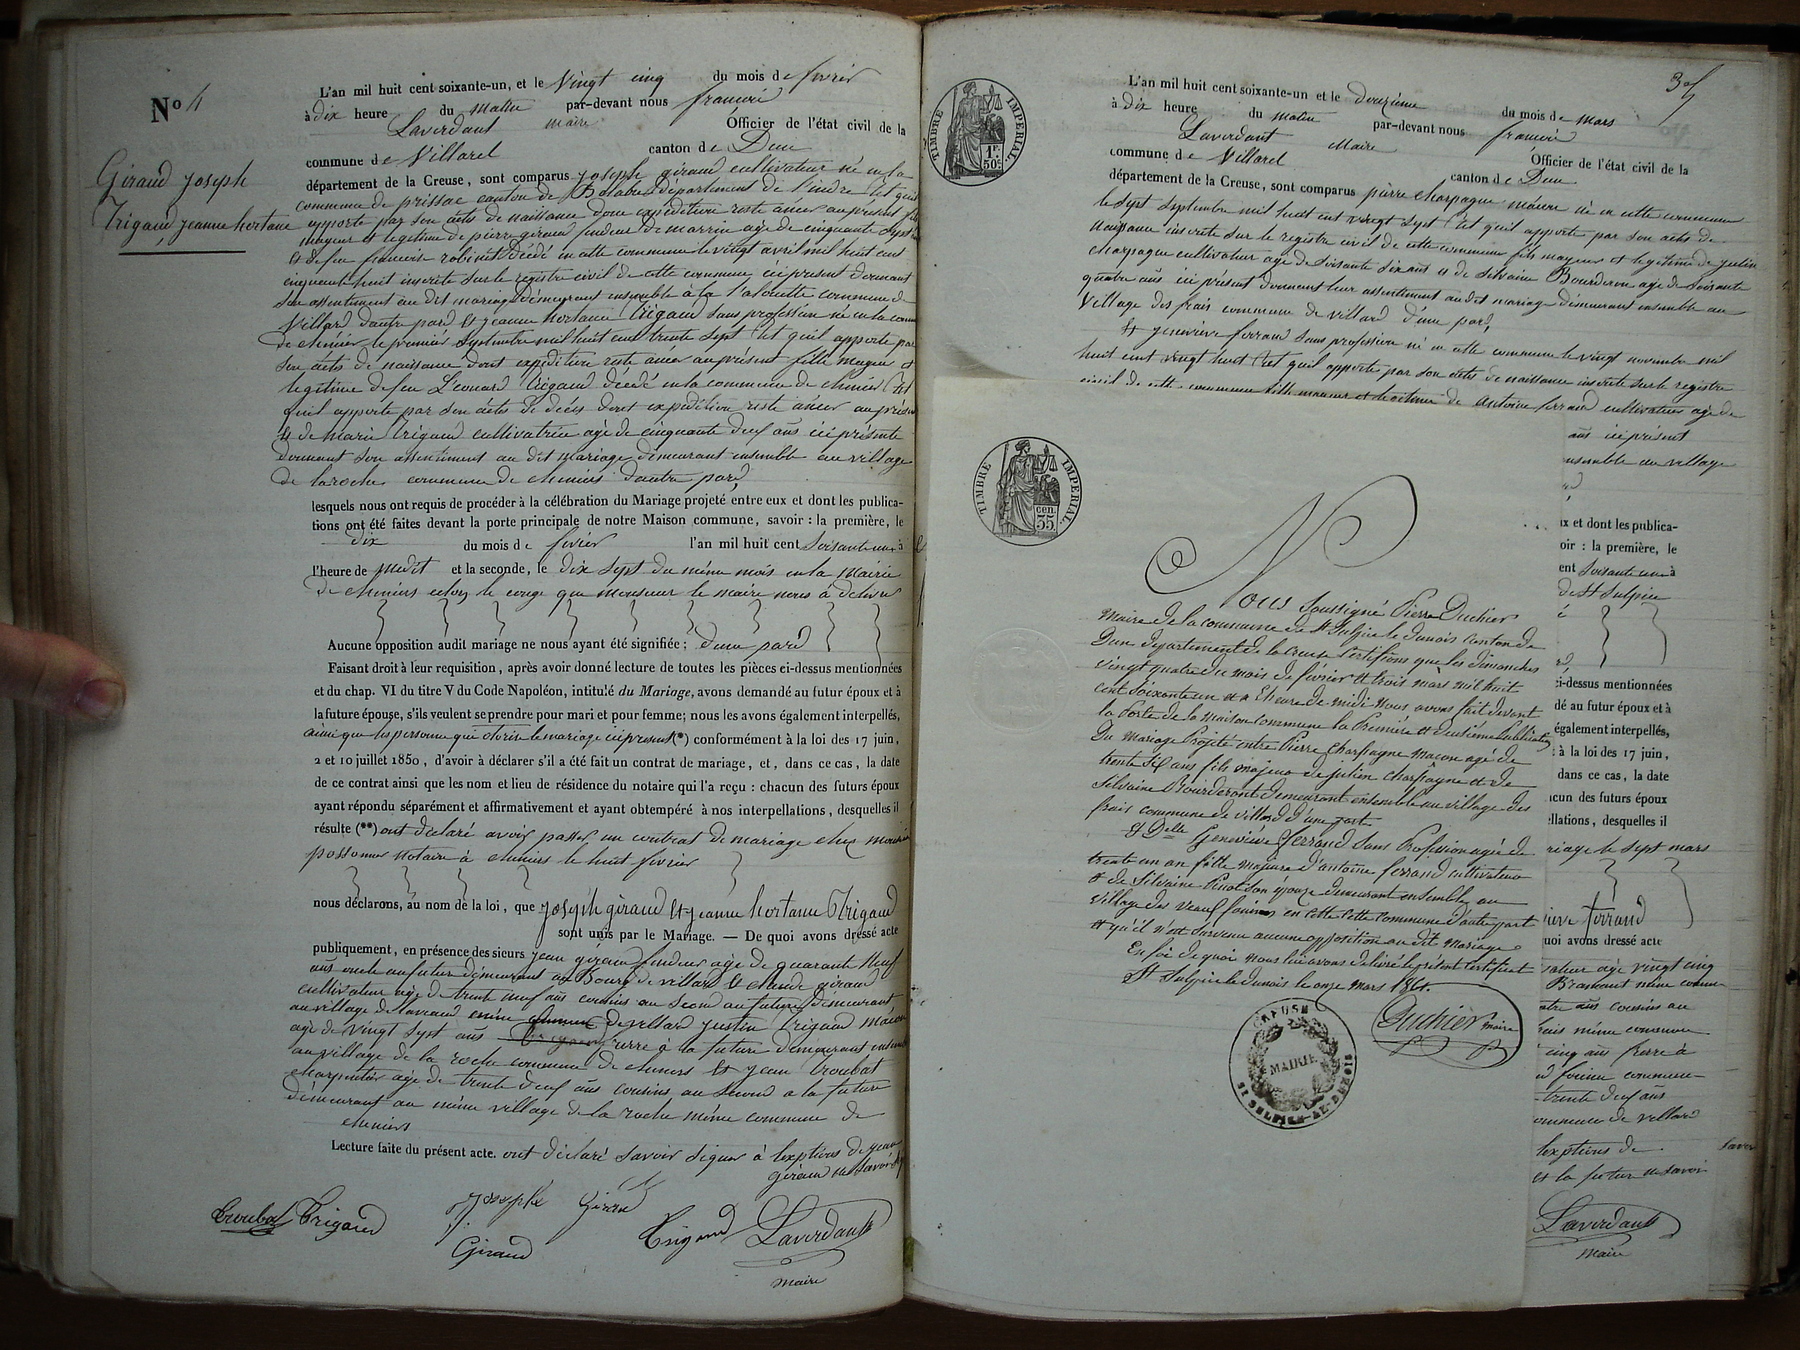 No 4
Giraud joseph
Trigaud jeanne hortanse
L'an mil huit cent soixante-un, et le vingt cinq du mois de fevrier
à dix heure du matin par-devant nous francois
Laverdant maire Officier de l'état civil de la
commune de Villard canton de Dun
département de la Creuse, sont comparus joseph giraud cultivateur né en la
commune de prissac canton de Bélabre département de l'indre
apporte par son acte de naissance dont expédition reste au présent fils
mayeur et legitime de pierre giraud fendeur de marrin age de cinquante sept
et de feu francoise robinet décédé en cette commune le vingt avril mil huit cent
cinquante huit inscrite sur le registre civil de cette commune ici présent donnant
son assentiment au dit mariage demeurant ensemble à la l'alouette commune de
Villard d'autre pard et jeanne hortanse Trigaud sans profession né en la commune
de chéniér le premier septembre mil huit cent trente sept et qu'il apporte par
son acte de naissance dont expédition reste au présent fille mageur et
legitime de feu Léonard Trigaud décédé en la commune de chéniér
qu'il apporte par son acte de décès dont expédition reste au présent
et de marie Trigaud cultivatrice agé de cinquante deuf ans ici présente
donnant son assentiment au dit mariage demeurant ensemble au village
de laroche commune de cheniers d'autre pard
lesquels nous ont requis de procéder à la célébration du Mariage projeté entre eux et dont les publica-
tions ont été faites devant la porte principale de notre Maison commune, savoir : la première, le
dix du mois de févrièr l'an mil huit cent soixante un à
l'heure de medit et la seconde, le dix sept du même mois en la Mairie
de cheniers celon le que monsieur le maire nous à délivré
Aucune opposition audit mariage ne nous ayant été signifiée ; d'une pard
Faisant droit à leur requisition, après avoir donné lecture de toutes les pièces ci-dessus mentionnées
et du chap. VI du titre V du Code Napoléon, intitulé du Mariage, avons demandé au futur époux et à
la future épouse, s'ils veulent se prendre pour mari et pour femme; nous les avons également interpellés,
ainsi que les personne qui otorise le mariage ici présent (*) conformément à la loi des 17 juin,
2 et 10 juillet 1850, d'avoir à déclarer s'il a été fait un contrat de mariage, et, dans ce cas, la date
de ce contrat ainsi que les nom et lieu de résidence du notaire qui l'a reçu : chacun des futurs époux
ayant répondu séparément et affirmativement et ayant obtempéré à nos interpellations, desquelles il
résulte (**) ont déclaré avoir passer un contrat de mariage chez
notaire à cheniers le huit fevrier
nous déclarons, au nom de la loi, que joseph giraud et jeanne hortanse Trigaud
sont unis par le Mariage. — De quoi avons dressé acte
publiquement, en présence des sieurs jean giraud fendeur age de quarante neuf
ans oncle au futur demeurant au Bourg de villard et giraud
cultivateur age de trente neuf ans cousins au second au future demeurant
au village de commune de villard justin Trigaud macon
age de vingt sept ans frere à la future demeurant
au village de la roche commune de cheniers et jean troubat
charpentier age de trente deuf ans cousins au second a la future
demeurant au même village de la roche même commune de
cheniers
Lecture faite du présent acte. ont déclaré savoir signer à l'exptions de jean
giraud
Troubat Trigaud Joseph Giraud Trigaud Laverdant
Giraud
maire
TIMBRE IMPERIAL
1 F. 50 c.
L'an mil huit cent soixante-un et le douzième du mois de mars
à dix heure du matin par-devant nous francois
Laverdant Maire Officier de l'état civil de la
commune de Villard canton de Dun
département de la Creuse, sont comparus pierre charpagne né en cette commune
le sept septembre mil huit cent vingt sept et qu'il apporte par son acte de
naissance inscrite sur le registre civil de cette commune fils mayeur et legitime de julien
charpagne cultivateur age de soisante six ans et de silvaine Bourderon age de soisante
quatre ans ici présent donnant leur assentiment audit mariage demeurant ensemble au
village des frais commune de villard d'une pard,
et genevieve ferrand sans profession né en cette commune le vingt novembre mil
huit cent vingt huit et qu'il apporte par son acte de naissance inscrite sur le registre
civil de cette commune fille mageur et legitime de Antoine ferrand cultivateur age de
ans ici présent
ensemble au village
ux et dont les publica-
oir : la première, le
ent soisante un à
de St Sulpice
ci-dessus mentionnées
dé au futur époux et à
également interpellés,
à la loi des 17 juin,
dans ce cas, la date
acun des futurs époux
ellations, desquelles il
riage le sept mars
ferrand
uoi avons dressé acte
vateur age vingt cinq
même commune
ans cousins au
même commune
cinq ans frere à
commune
trente deuf ans
commune de villard
l'exptions de
et la futur
Laverdant
maire
TIMBRE IMPERIAL
cen. 55.
Nous Soussigné Pierre Duchier
Maire de la commune de St Sulpice le dunois Canton de
Dun departement de la Creuse Certifions que les dimanches
vingt quatre du mois de février et trois mars mil huit
cent soixante un et a l'heure de midi Nous avons fait devant
la Porte de la maison commune la Première et deuxième Publication
du Mariage Projeté entre Pierre Charpagne macon agé de
trente six ans fils majeur de julien charpagne et de
Silvaine Bourderont demeurant ensemble au village des
frais commune de villard d'une part
Et Delle Genevieve Ferrand Sans Profession agée de
trente un an fille majeure d'antoine ferrand cultivateur
et de Silvaine Pinot Son épouse demeurant ensemble au
village des en cette commune d'autre part
et qu'il n'est survenu aucune opposition au dit Mariage
En foi de quoi nous lui avons délivré le présent Certificat
St Sulpice le dunois le onze Mars 1861.
Duchier maire
CREUSE
MAIRIE
ST SULPICE-LE-DUNOIS